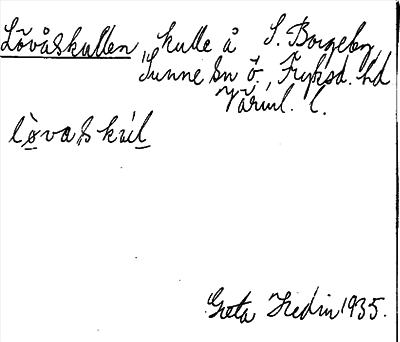 Lövåskullen, kulle å S. Borgeby,
Sunne sn Ö. Fryksd. hd
Värml. l.
lò̤vaskúl
Greta Hedin 1935.